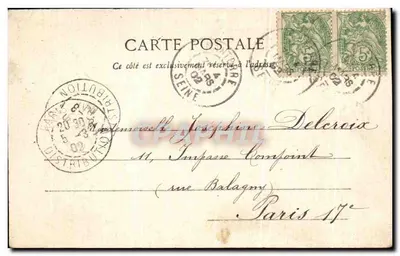 CARTE POSTALE
Ce côté est exclusivement réservé à l'adresse
Mademoiselle Josephine Delcroix
11, Impasse Compoint
(rue Balagny)
Paris 17e
PARIS
DISTRIBUTION
02
SEINE
02
5
5